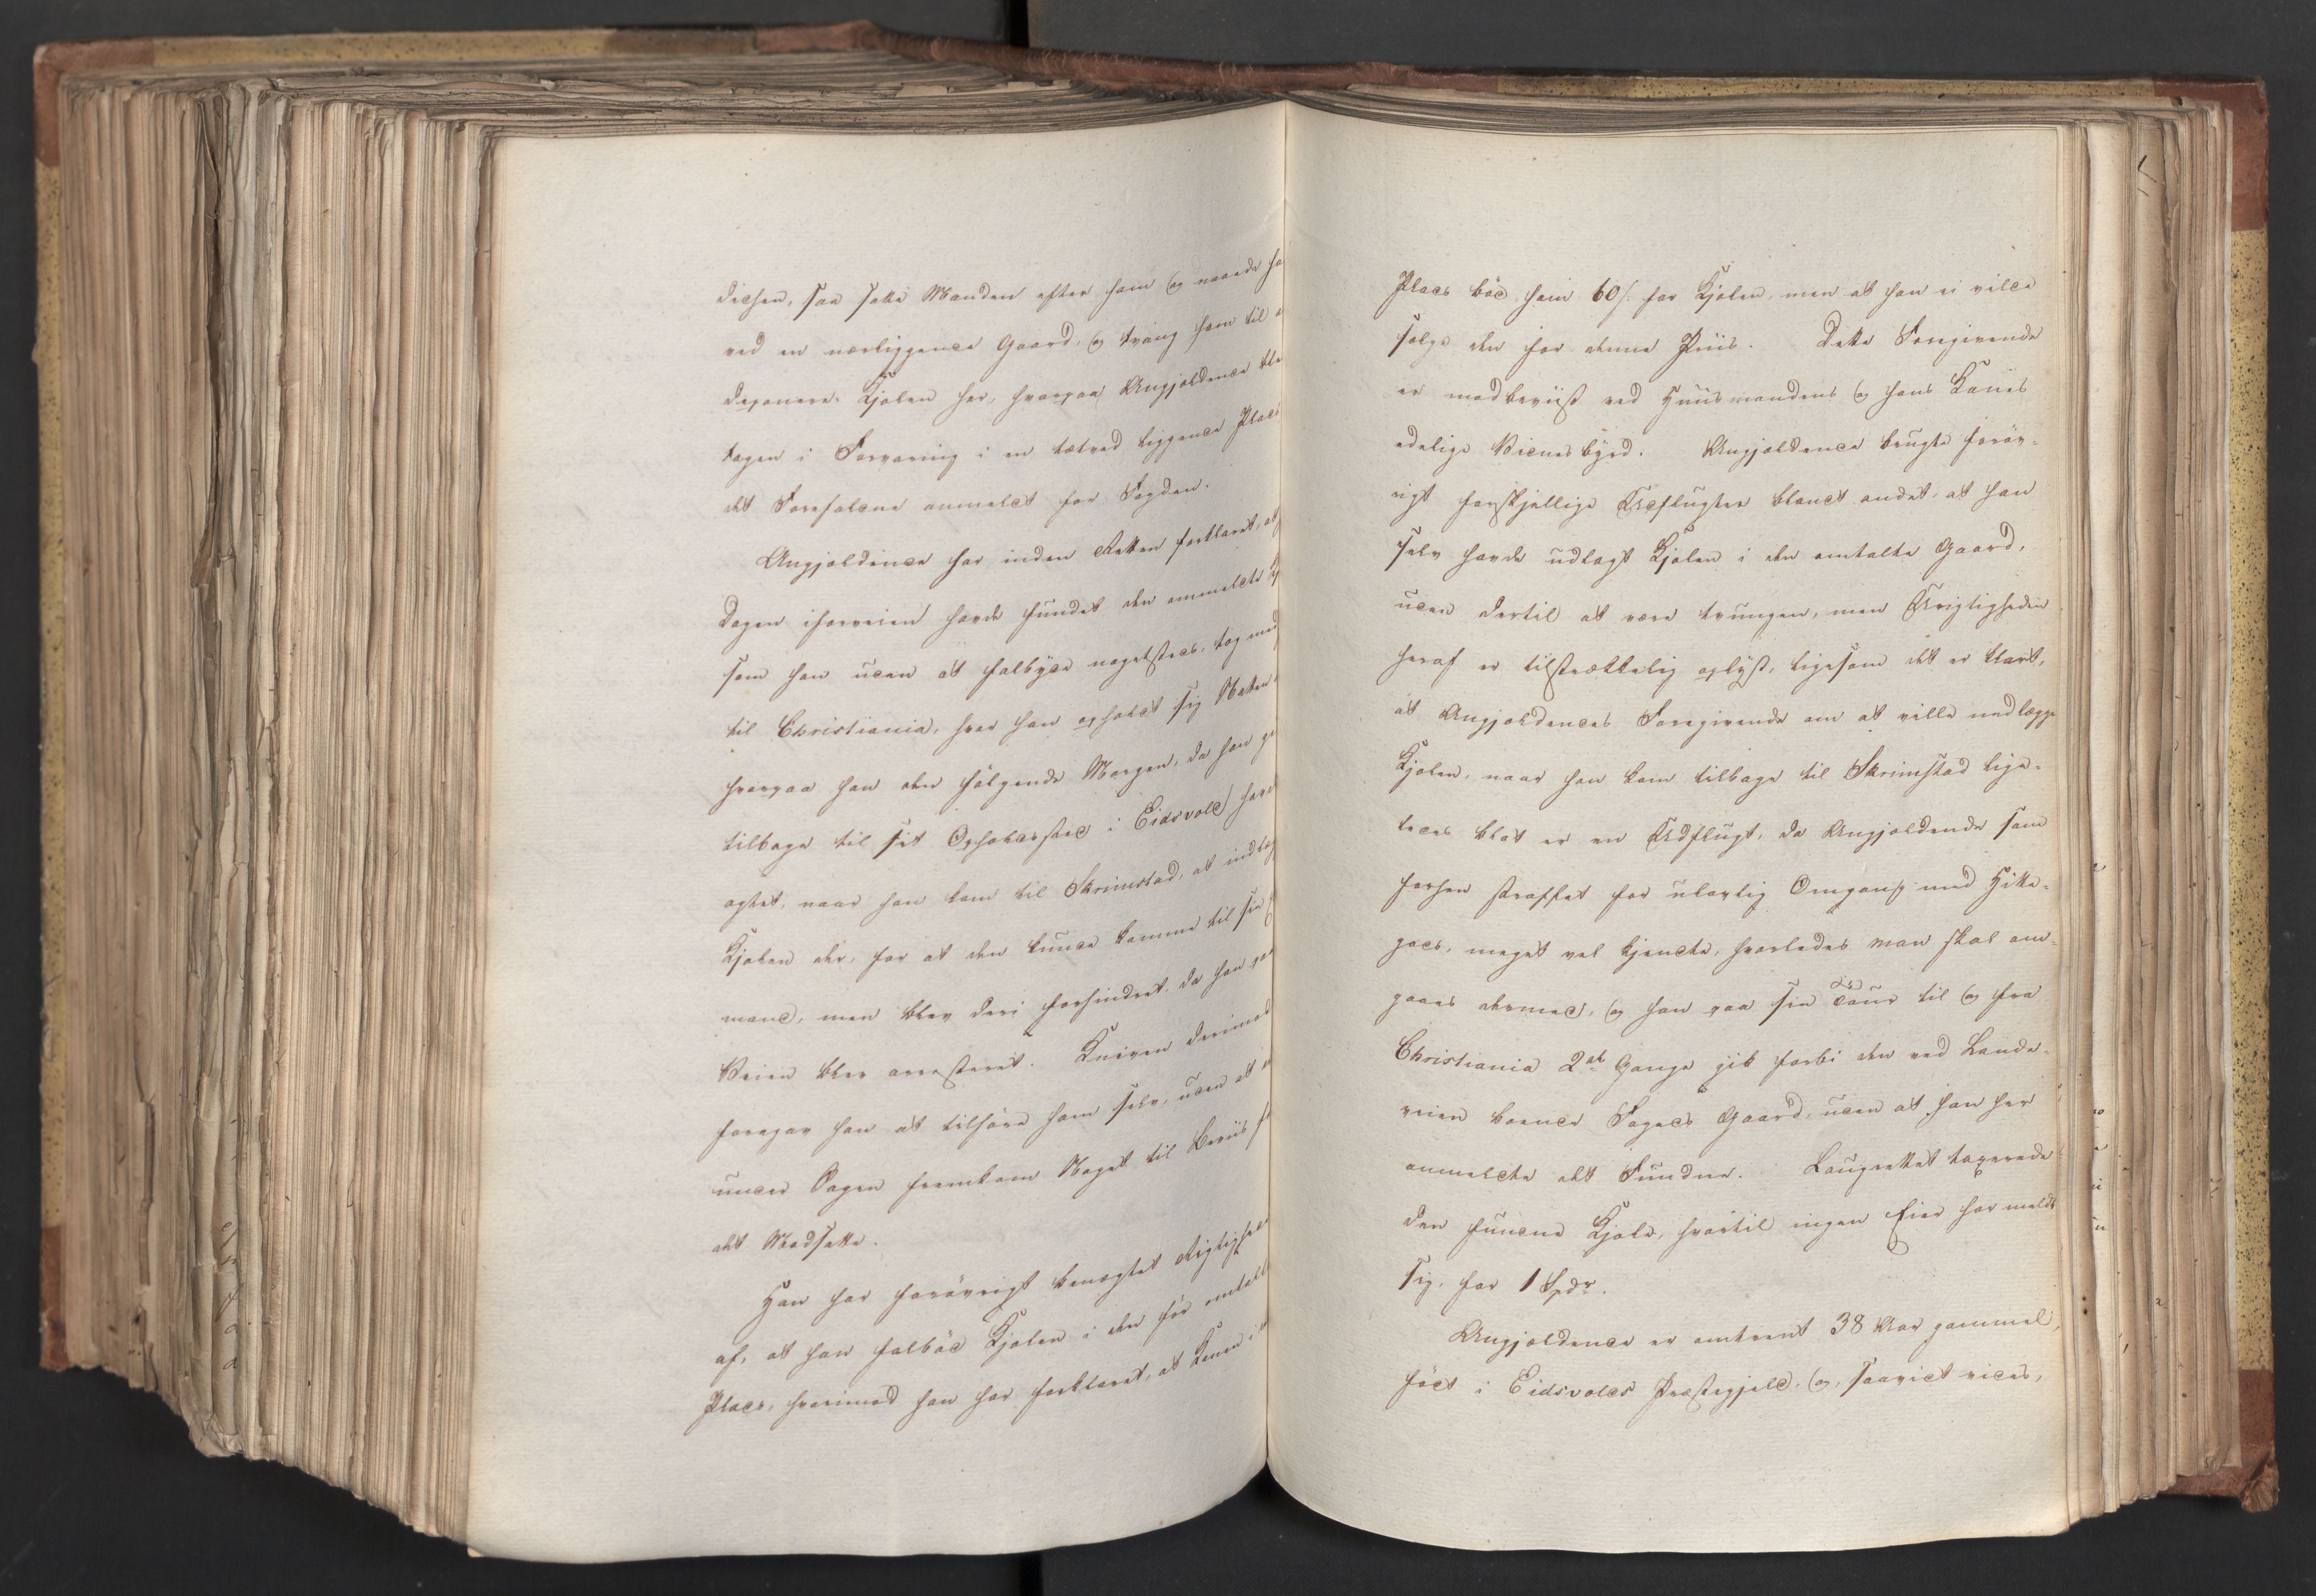 disken, saa satte Manden efter ham og naaede ha
ved en nærliggende Gaard, og tvang ham til a
deponere Kjolen her, hvorpaa Angjeldende ble
tagen i Forvaring i en tætved liggende Plads
det Forefaldne anmeldt for Fogden.
Angjeldende har inden Retten forklaret, at
Dagen iforveien havde fundet den ommeldte Kj
som han uden at falbyde nogetsteds, tog med
til Christiania, hvor han opholdt sig Natten
hvorpaa han den følgende Morgen, da han gi
tilbage til sit Opholdssted i Eidsvold havd
agtet, naar han kom til Skrimstad, at indlæg
Kjolen der, for at den kunde komme til sin
mand, men blev deri forhindret, da han paa
Veien blev arresteret. Kniven derimod
foregav han at tilhøre ham selv, uden at
under Sagen fremkom Noget til Beviis f
det Modsatte.
Han har forøvrigt benægtet Rigtighed
af, at han falbød Kjolen i den før omtalt
Plads, hvorimod han har forklaret, at Konen i
Plads bød ham 60 s. for Kjolen, men at han ei vilde
sælge den for denne Priis. Dette Foregivende
er modbeviist ved Huusmandens og hans Kones
edelige Vidnesbyrd. Angjeldende brugte forøv-
rigt forskjellige Udflugter blandt andet, at han
selv havde udlagt Kjolen i den omtalte Gaard,
uden dertil at være tvungen, men Urigtigheden
heraf er tilstrækkelig oplyst, ligesom det er klart,
at Angjeldendes Foregivende om at ville nedlægge
Kjolen, naar han kom tilbage til Skrimstad lige-
ledes blot er en Udflugt, da Angjeldende som
forhen straffet for ulovlig Omgang med Hitte-
gods, meget vel kjendte, hvorledes man skal om-
gaaes dermed, og han paa sin Tour til og fra
Christiania 2de Gange gik forbi den ved Lande-
veien boende Fogeds Gaard, uden at han her
anmeldte det Fundne. Laugrettet taxerede
den fundne Kjole, hvortil ingen Eier har meldt
sig, for 1 Spdr.
Angjeldende er omtrent 38 Aar gammel,
fød i Eidsvolds Præstegjeld, og, saavidt vides,